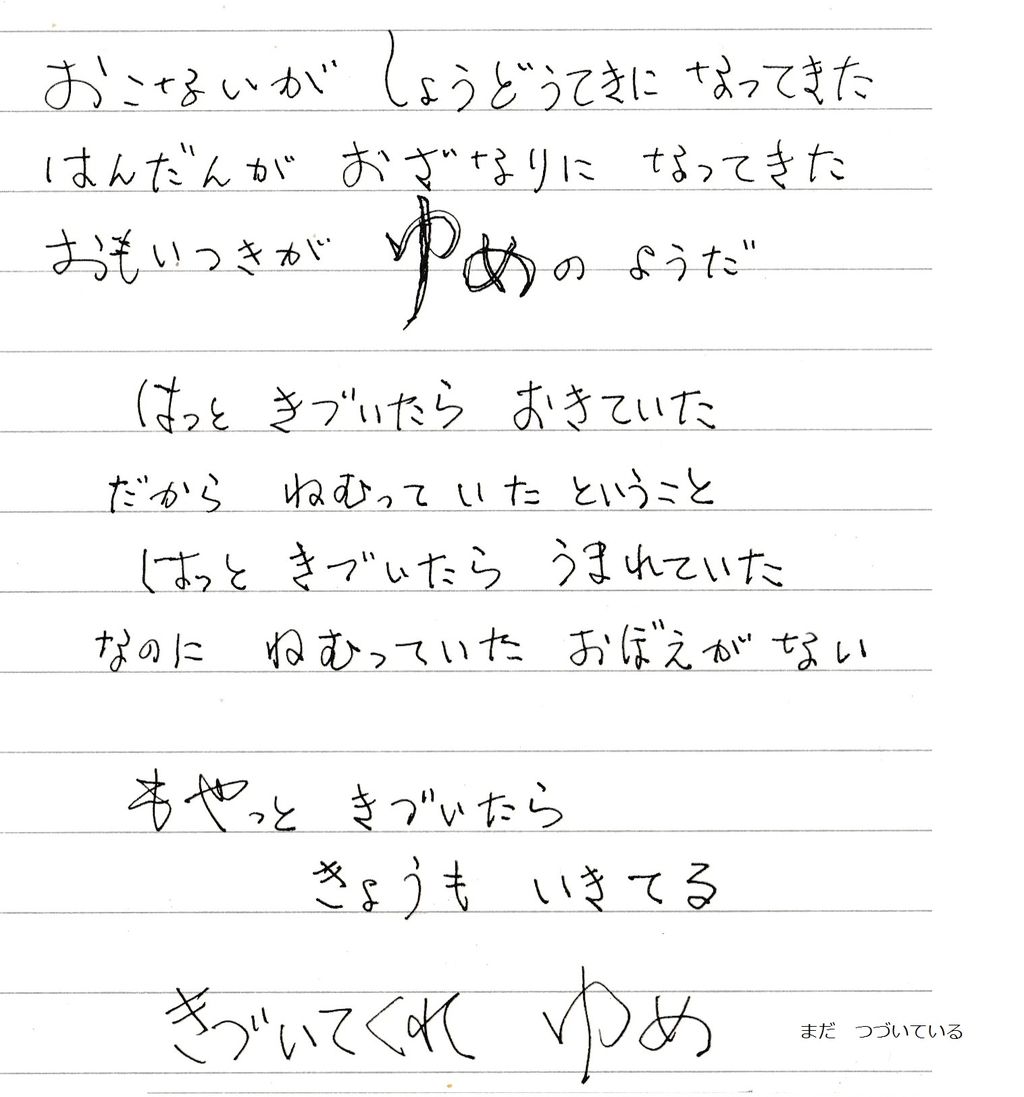 おこないが しょうどうてきに なってきた
はんだんが おざなりに なってきた
おもいつきが ゆめの ようだ
はっと きづいたら おきていた
だから ねむって いた ということ
はっと きづいたら うまれていた
なのに ねむっていた おぼえが ない
もやっと きづいたら
きょうも いきてる
きづいてくれ ゆめ
まだ つづいている